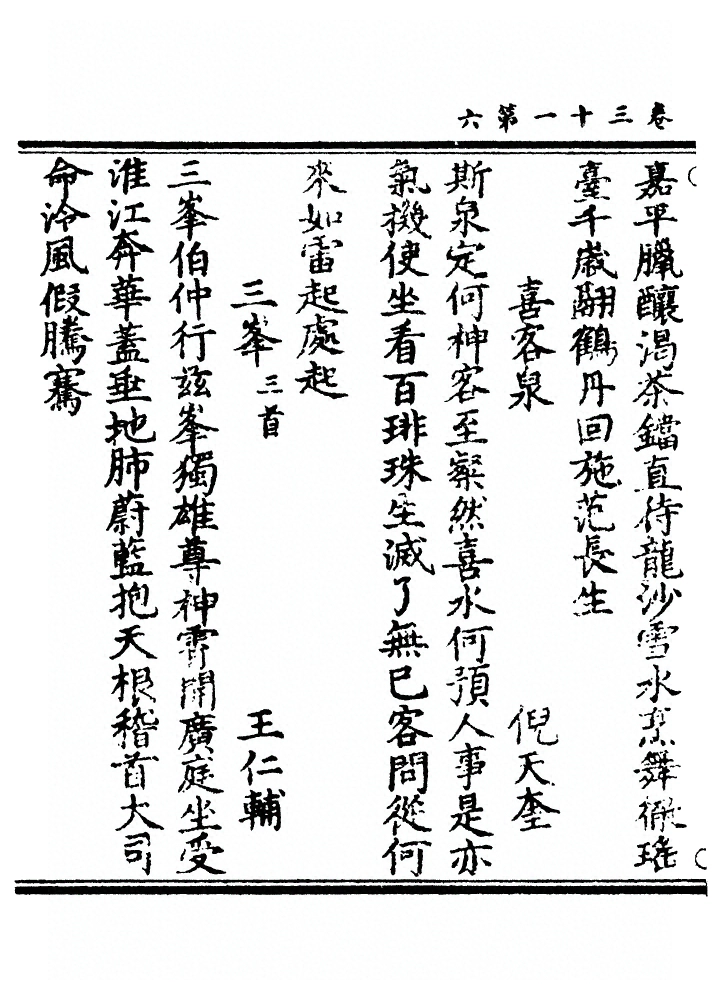 卷三十一第六
嘉平臘釀渴茶鐺直待龍沙雪水烹舞徹瑤
臺千歲翮鶴丹回施范長生
喜客泉 倪天奎
斯泉定何神客至粲然喜水何預人事是亦
氣機使坐看百琲珠生滅了無已客問從何
來如雷起處起
三峯三首 王仁輔
三峯伯仲行茲峯獨雄尊神霄開廣庭坐受
淮江奔華蓋垂地肺蔚藍抱天根稽首大司
命泠風假騰騫